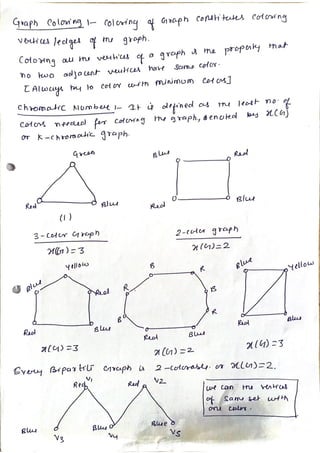 Graph Coloring :- Coloring of Graph constitutes coloring
vertices/edges of the graph.
Coloring all the vertices of a graph is the property that
no two adjacent vertices have same color.
[Always try to color with minimum colors]
Chromatic Number :- It is defined as the least no of
colors needed for coloring the graph, denoted by χ(G)
or K-chromatic graph.
Green Blue Red
Red Blue Red Blue
(1)
3-color Graph 2-color graph
χ(G)=3 χ(G)=2
Yellow B R Blue Yellow
Blue Red R B
B R
Red Blue Red Blue Red Blue
χ(G)=3 χ(G)=2 χ(G)=3
Every Bipartite Graph is 2-colorable or χ(G)=2.
V1 V2
Red Red
we can the vertices
of same set with
one color.
Blue Blue Blue
V3 V4 V5